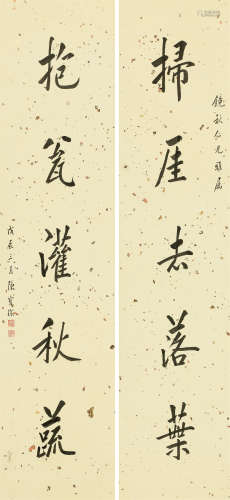 鏡秋仁兄雅属
掃厓去落葉
抱瓮灌秋蔬
戊辰三月陳寶琛